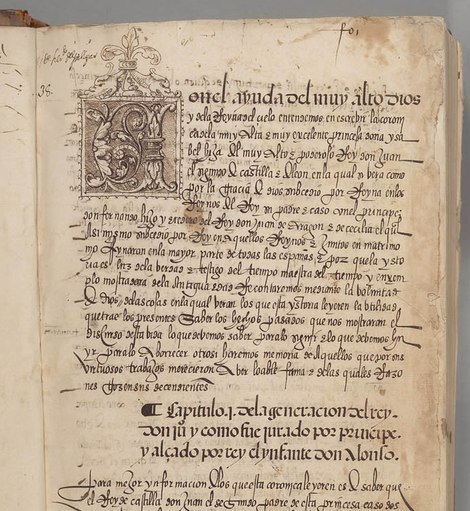 fo 1
38.
Con el ayuda del muy alto dios
y dela Reyna del cielo entendemos en escrebir la coron
ca dela muy Alta e muy excelente princesa doña ysa
bel hija del muy Alto e poderoso Rey don Juan
el de castilla e de leon en la qual y vera como
por la gracia de dios subcedio por Reyna en los
Reynos del Rey su padre e caso con el principe
don fernando hijo y del Rey don Juan de Aragon e de cecilia el qul
Asi mismo subcedio por Rey en Aquellos Reynos e juntos en matrimo
nio Reynaron en la mayor parte de todas las españas e por quela ysto
ria es luz dela berdad e testigo del tiempo maestra del tiempo y enxem
plo mostradora dela Antiguedad Recontaremos mediante la boluntad
de dios delas cosas en la qual beran los que esta ystoria leyeren la
que trae los presentes saber los hechos pasados que nos mostraran el
discurso desta vida lo que debemos saber para lo e lo que debemos
yr para lo Aborrecer otrosi haremos memoria de Aquellos que por sus
virtuosos trabajos merecieron Aber loable fama e delas quales Razo
nes gozen sus decendientes
¶ Capitulo .I. de la generacion del rey
don juº y como fue jurado por principe
y alçado por rey el ynfante don Alonso.
para mejor ynformacion delos que esta coronica leyeren es de saber que
el Rey de castilla don Juan el segundo padre de esta princesa caso dos